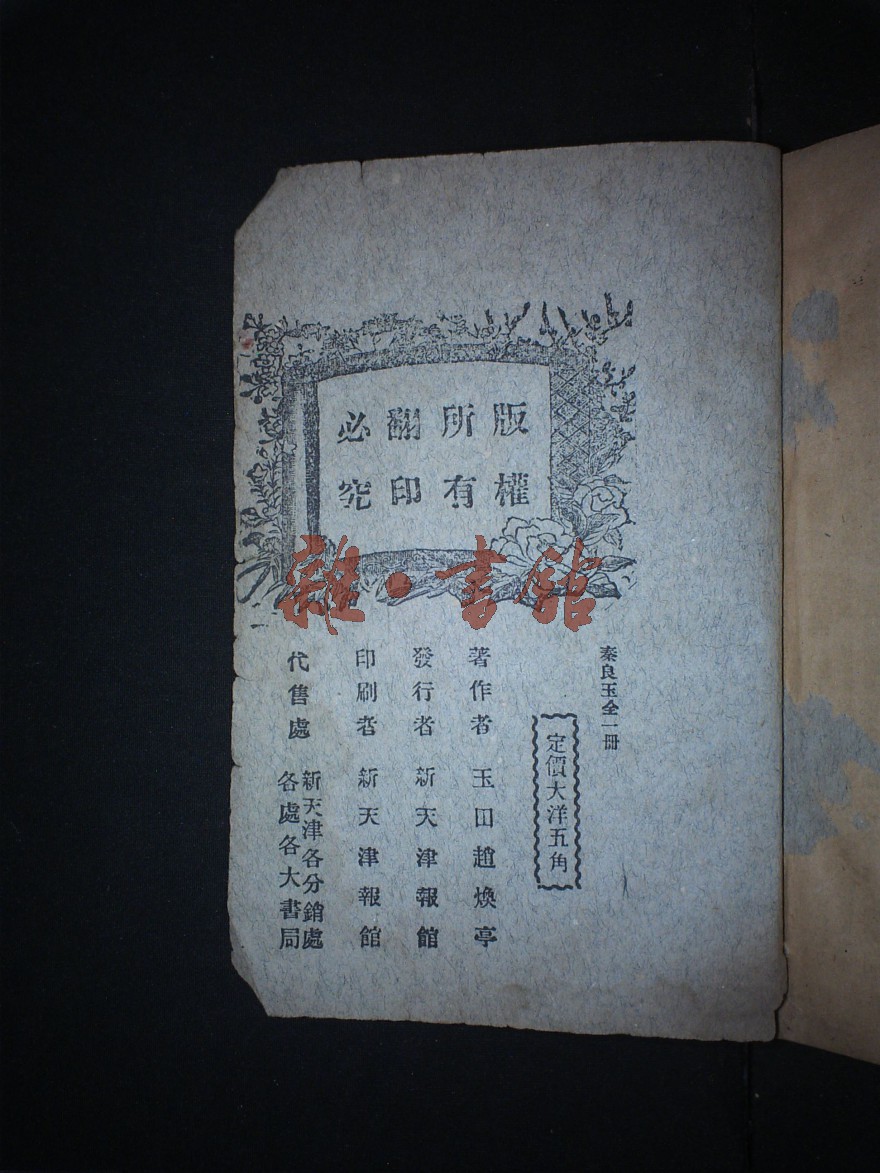 版權
所有
翻印
必究
雜·書館
秦良玉全一冊
定價大洋五角
著作者 玉田趙煥亭
發行者 新天津報館
印刷者 新天津報館
代售處 新天津各分銷處
各處各大書局